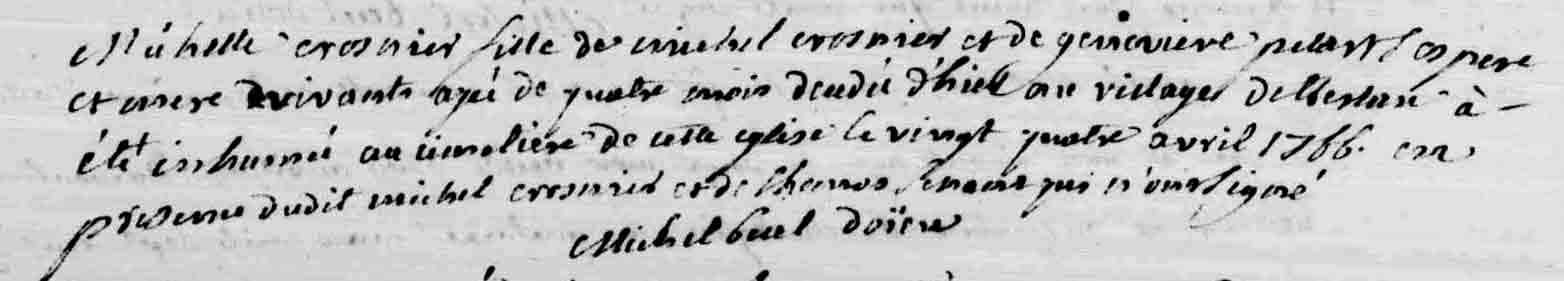 Michelle crosnier fille de michel crosnier et de genevieve ses pere
et mere vivants agé de quatre mois decedé d'hier au village de à
été inhumé au cimetière de cette eglise le vingt quatre avril 1766. en
presence dudit michel crosnier et de thomas qui n'ont signé
Michel doïen